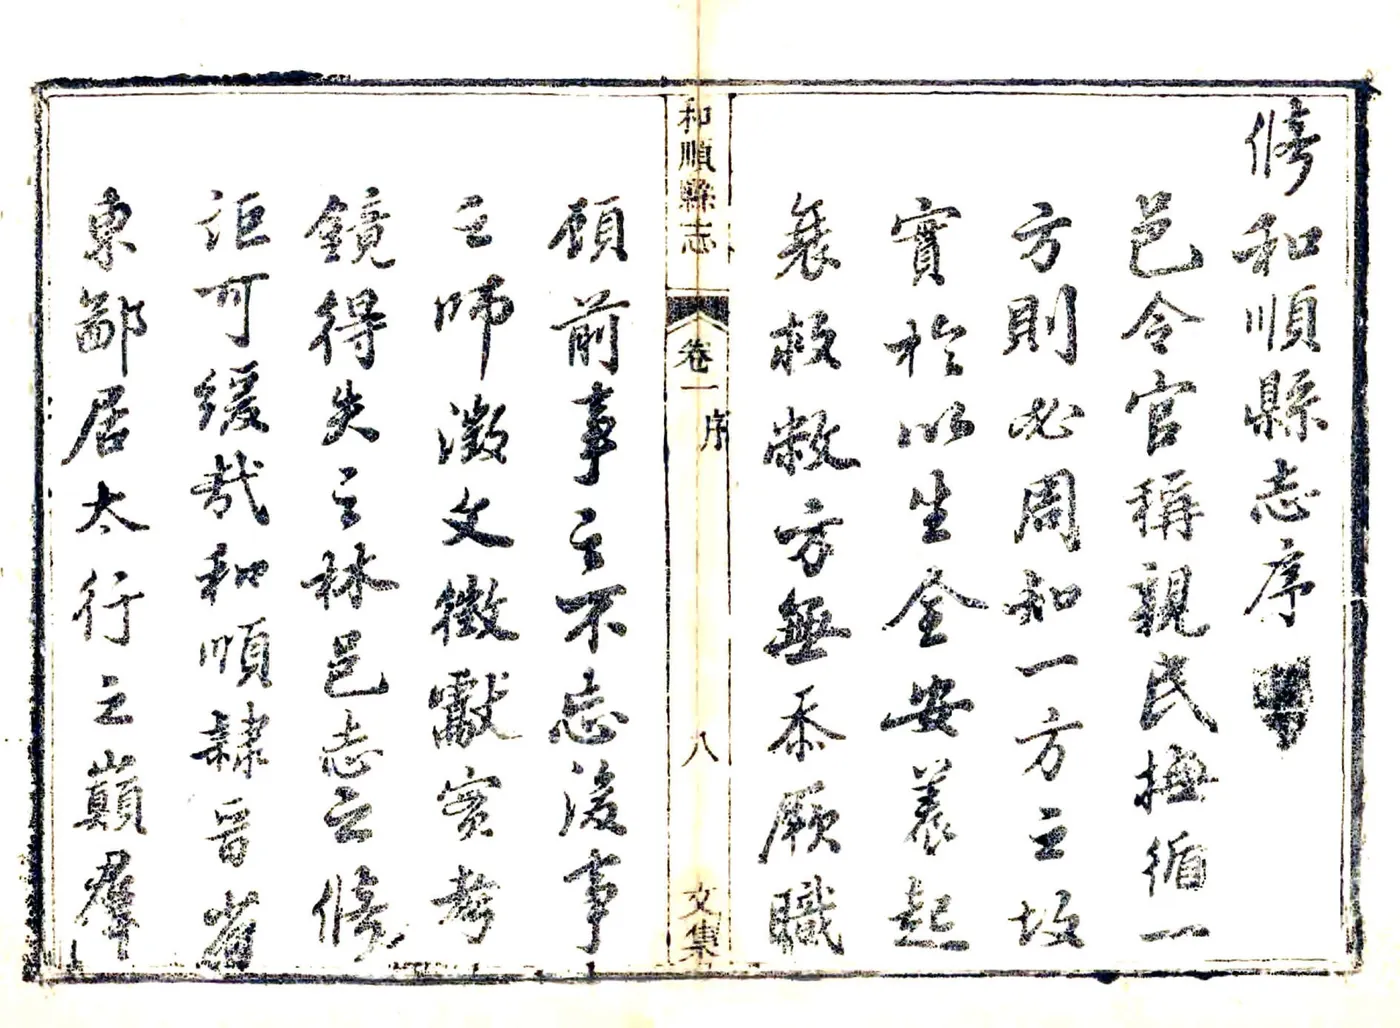 修和順縣志序
邑令官稱親民撫循一
方則必周知一方之故
實於以生全安養起
衰救敝方無忝厥職
和順縣志 卷一 序 八 文集
顧前事之不忘後事
之師徵文徵獻實考
鏡得失之林邑志之修
詎可緩哉和順隸晉省
東鄙居太行之巔羣